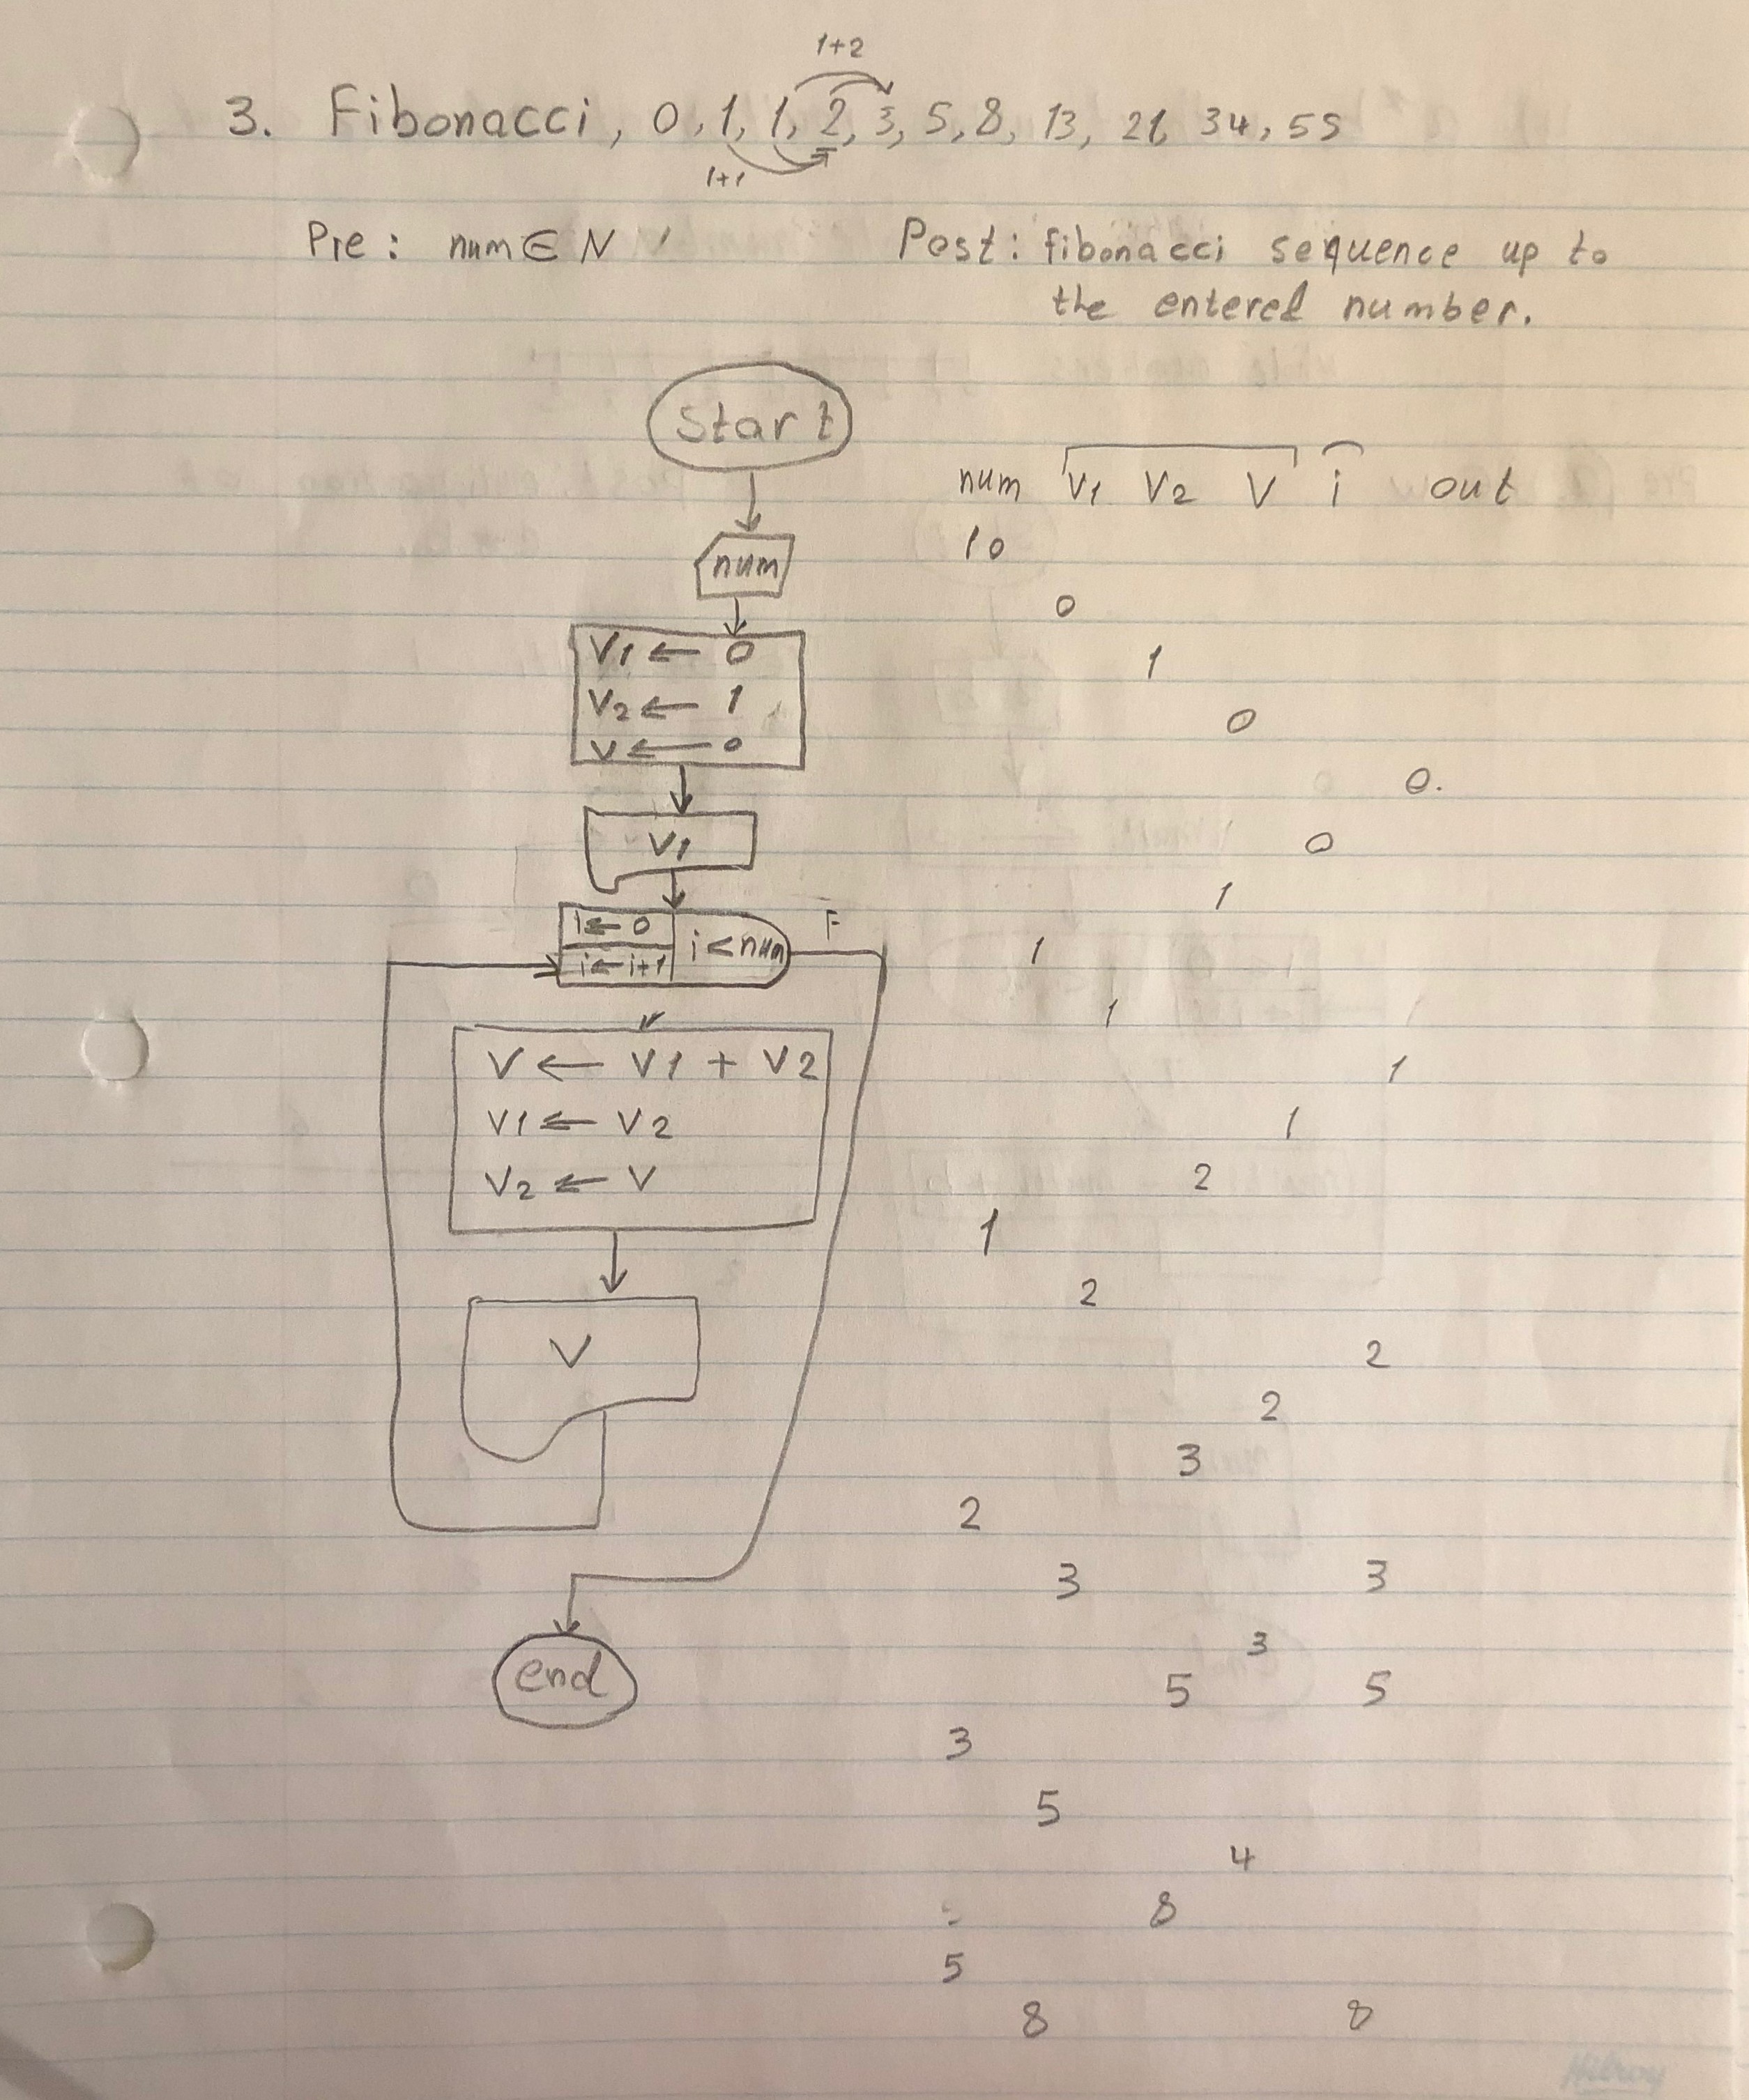 1+2
3. Fibonacci, 0, 1, 1, 2, 3, 5, 8, 13, 21, 34, 55
1+1
Pre: num ∈ N
Post: fibonacci sequence up to
the entered number.
Start
num
V1 ← 0
V2 ← 1
V ← 0
V1
i ← 0
i ← i+1
i < num
F
V ← V1 + V2
V1 ← V2
V2 ← V
V
end
num V1 V2 V i out
10
0
1
0
0.
0
1
1
1
1
1
2
1
2
2
2
3
2
3 3
3
5 5
3
5
4
8
5
8 8
Hilroy